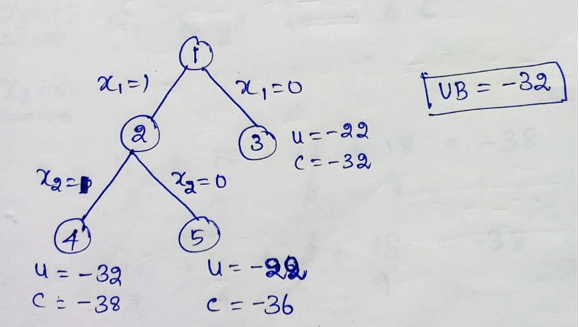 1
x₁=1
x₁=0
UB = -32
2
3
U = -22
C = -32
x₂=1
x₂=0
4
5
U = -32
C = -38
U = -22
C = -36